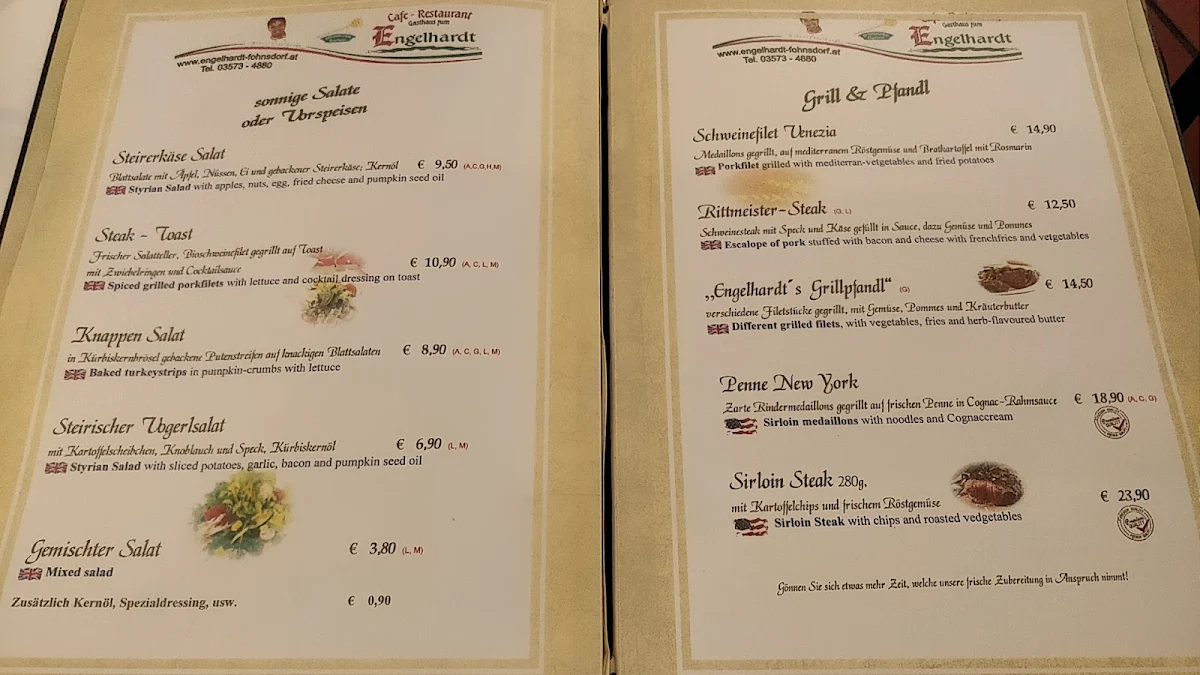 Cafe - Restaurant
Gasthaus zum
Engelhardt
www.engelhardt-fohnsdorf.at
Tel. 03573 - 4880
sonnige Salate
oder Vorspeisen
Steirerkäse Salat
Blattsalate mit Äpfel, Nüssen, Ei und gebackener Steirerkäse; Kernöl € 9,50 (A,C,G,H,M)
Styrian Salad with apples, nuts, egg, fried cheese and pumpkin seed oil
Steak - Toast
Frischer Salatteller, Bioschweinefilet gegrillt auf Toast
mit Zwiebelringen und Cocktailsauce € 10,90 (A, C, L, M)
Spiced grilled porkfilets with lettuce and cocktail dressing on toast
Knappen Salat
in Kürbiskernbrösel gebackene Putenstreifen auf knackigen Blattsalaten € 8,90 (A, C, G, L, M)
Baked turkeystrips in pumpkin-crumbs with lettuce
Steirischer Vogerlsalat
mit Kartoffelscheibchen, Knoblauch und Speck, Kürbiskernöl € 6,90 (L, M)
Styrian Salad with sliced potatoes, garlic, bacon and pumpkin seed oil
Gemischter Salat € 3,80 (L, M)
Mixed salad
Zusätzlich Kernöl, Spezialdressing, usw. € 0,90
Gasthaus zum
Engelhardt
www.engelhardt-fohnsdorf.at
Tel. 03573 - 4880
Grill & Pfandl
Schweinefilet Venezia € 14,90
Medaillons gegrillt, auf mediterranem Röstgemüse und Bratkartoffel mit Rosmarin
Porkfilet grilled with mediterran-vetgetables and fried potatoes
Rittmeister-Steak (G, L) € 12,50
Schweinesteak mit Speck und Käse gefüllt in Sauce, dazu Gemüse und Pommes
Escalope of pork stuffed with bacon and cheese with frenchfries and vetgetables
„Engelhardt´s Grillpfandl“ (G) € 14,50
verschiedene Filetstücke gegrillt, mit Gemüse, Pommes und Kräuterbutter
Different grilled filets, with vegetables, fries and herb-flavoured butter
Penne New York
Zarte Rindermedaillons gegrillt auf frischen Penne in Cognac-Rahmsauce € 18,90 (A, C, G)
Sirloin medaillons with noodles and Cognaccream
Sirloin Steak 280g,
mit Kartoffelchips und frischem Röstgemüse € 23,90
Sirloin Steak with chips and roasted vedgetables
Gönnen Sie sich etwas mehr Zeit, welche unsere frische Zubereitung in Anspruch nimmt!